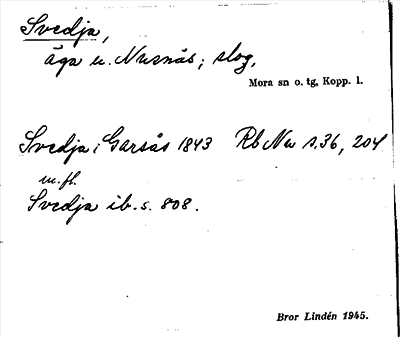 Svedja,
äga u. Nusnäs; skog,
Mora sn o. tg, Kopp. l.
Svedja i Garsås 1843 Rb Nu s. 36, 204
m. fl.
Svedja ib. s. 808.
Bror Lindén 1945.